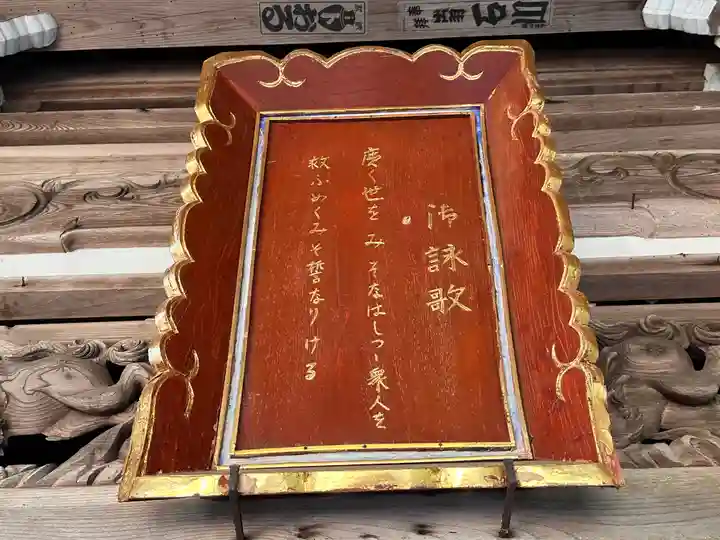 御詠歌
廣く世を みそなはしつゝ衆人を
救ふめぐみぞ誓なりける